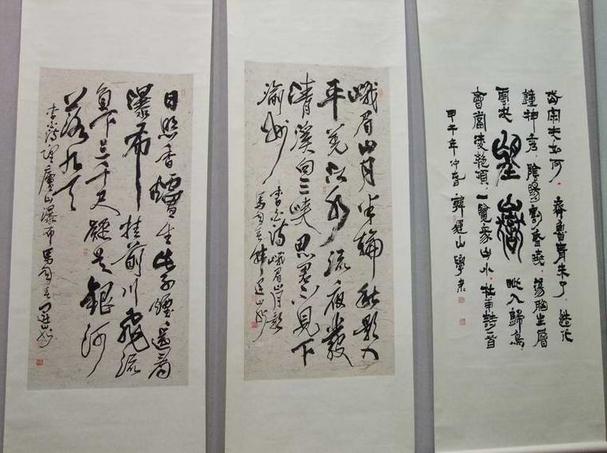 岱宗夫如何齊魯青未了造化
鍾神秀陰陽割昏曉蕩胸生層
入歸鳥
望嶽
會當凌絕頂一覽眾山小杜甫詩一首
甲午年仲春
峨眉山月半輪秋影入
平羌江水流夜發
清溪向三峽思君不見下
渝州
李白詩峨眉山月歌
日照香爐生紫煙遙看
瀑布掛前川飛流
直下三千尺疑是銀河
落九天
李白詩望廬山瀑布